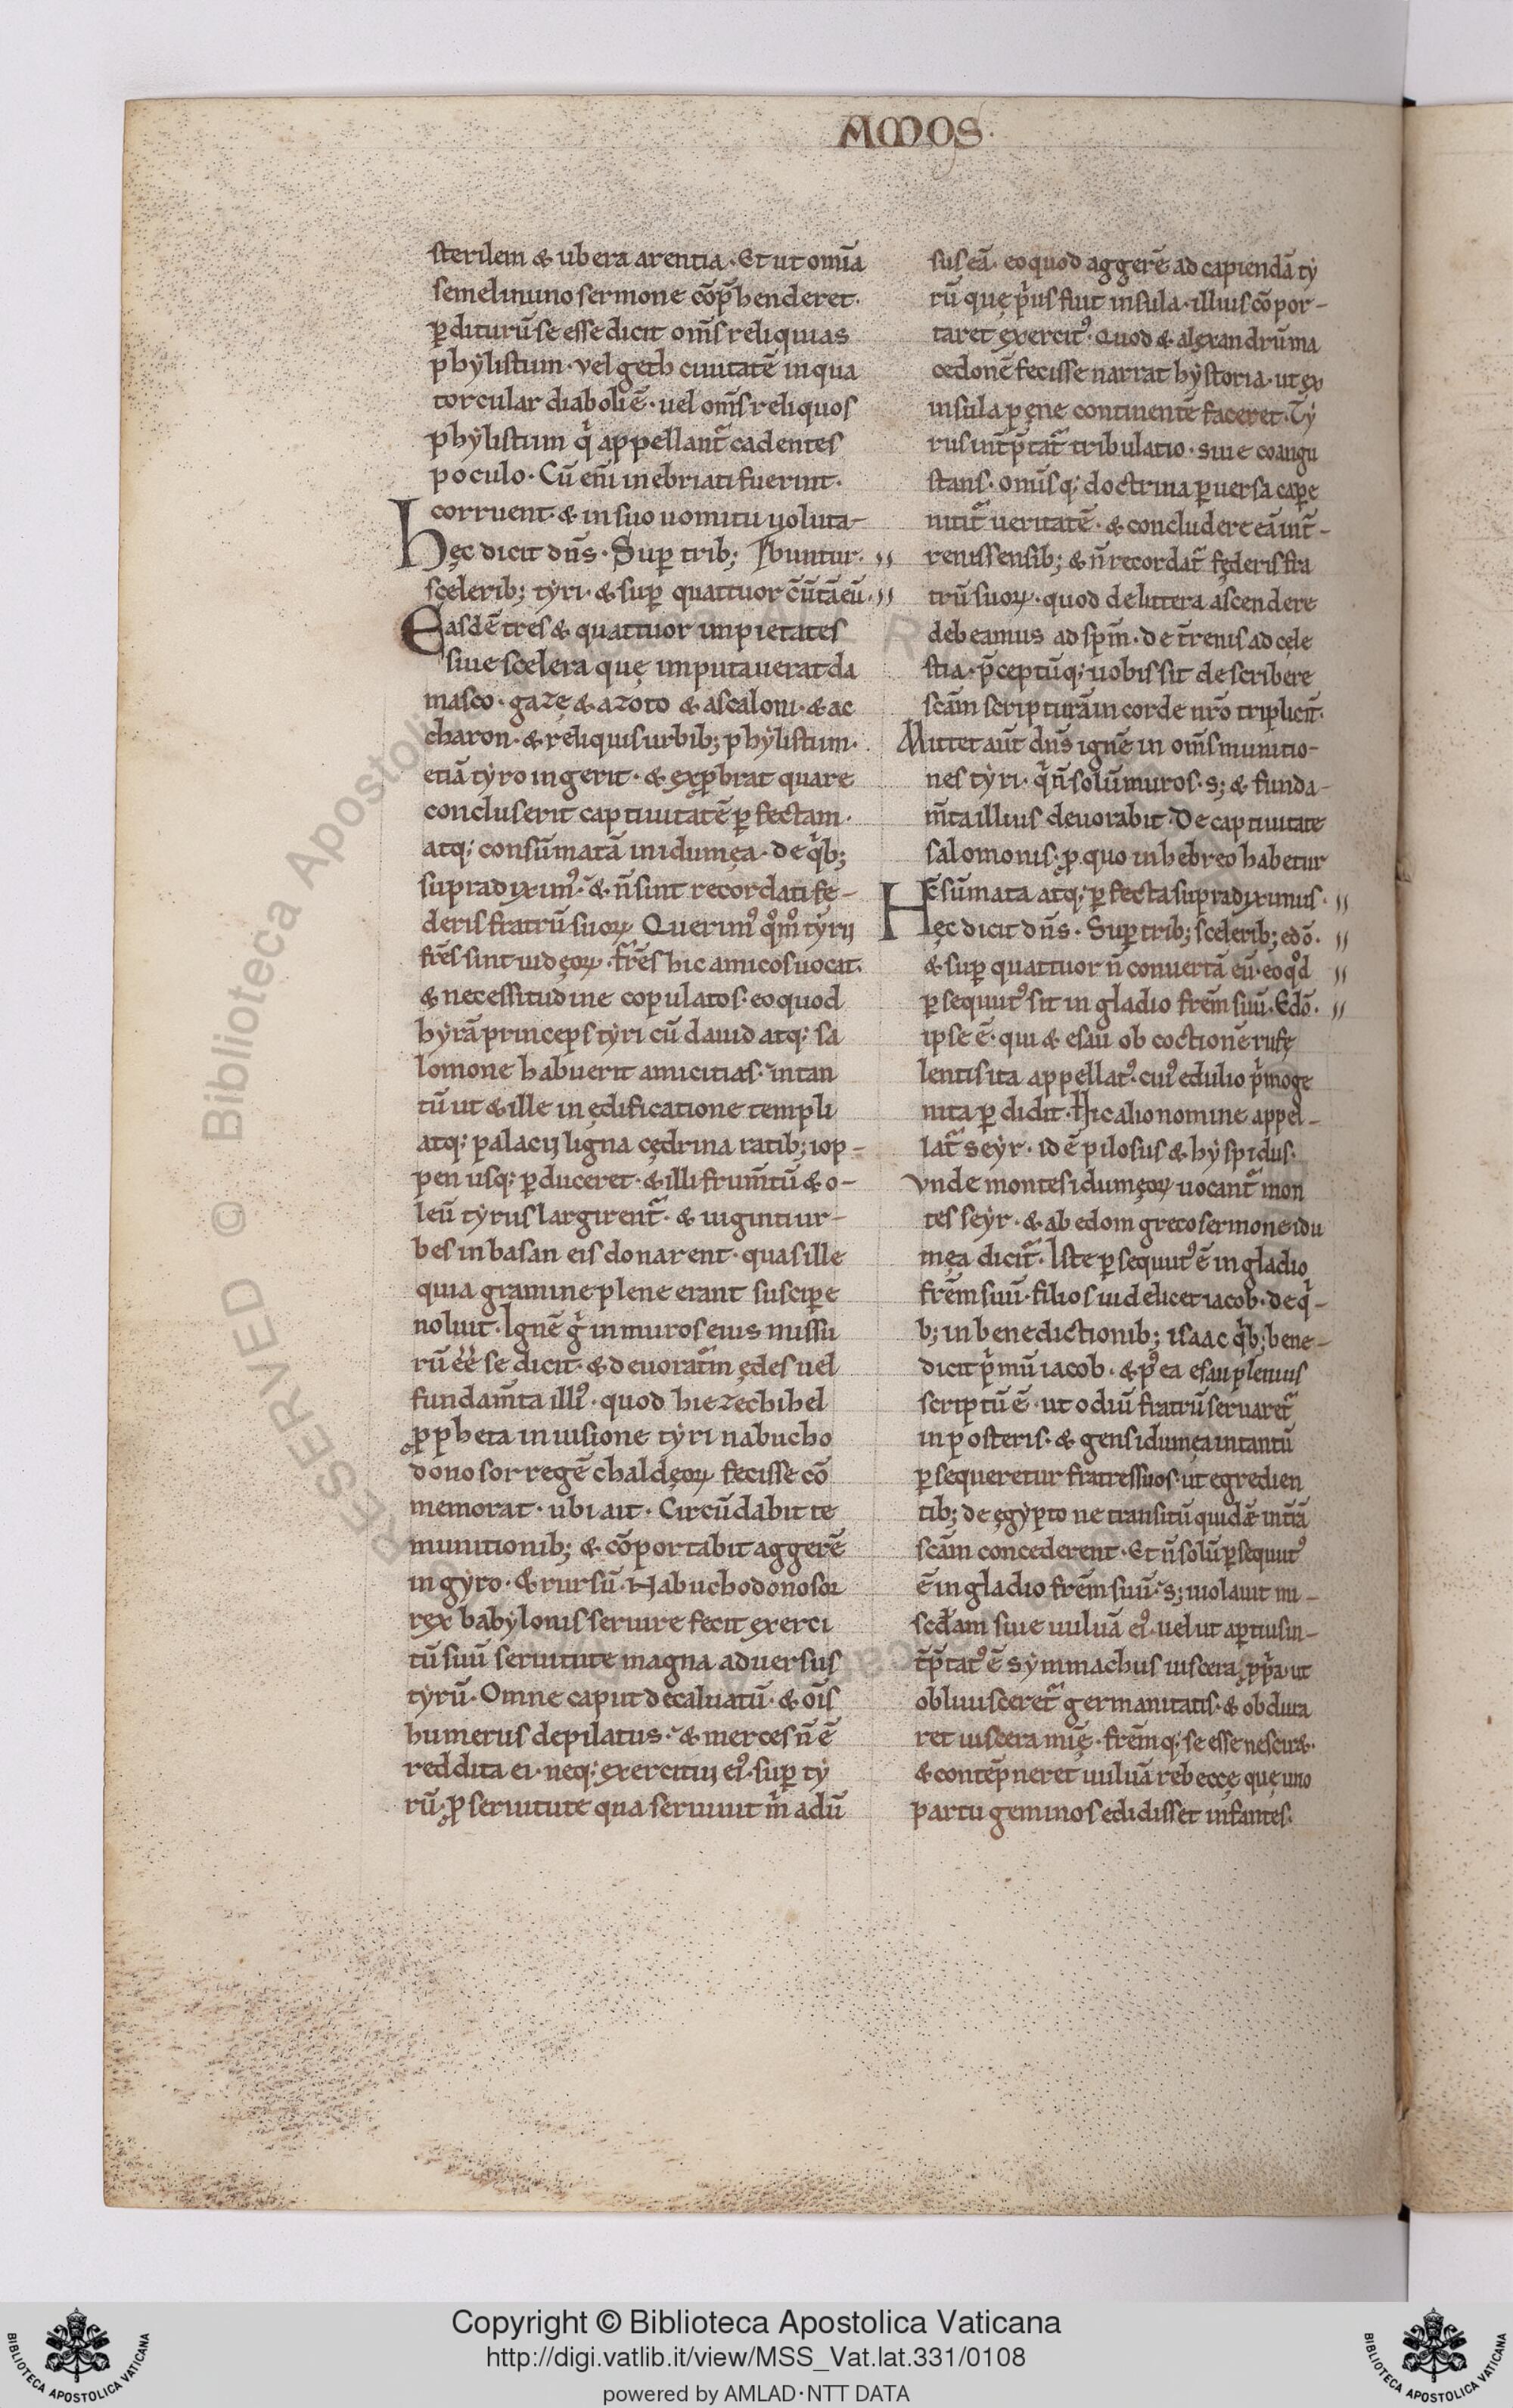 AMOS.
sterilem & ubera arentia. Et ut omīa
semel in uno sermone cōp̄henderet.
ꝑditurū se esse dicit om̄s reliquias
phylistum. vel geth ciuitatē in qua
torcular diaboli ē. uel om̄s reliquos
phylistum q̇ appellant᷑ cadentes
poculo. Cū eni inebriati fuerint.
corruent. & in suo uomitu uoluta-
buntur.
Hęc dicit dn̄s. Suꝑ trib;
scelerib; tyri. & suꝑ quattuor c̄ūtā eū.
Easdē tres & quattuor impietates
siue scelera quę imputauerat da
masco. gazę & azoto & ascaloni. & ac
charon. & reliquis urbib; phylistum.
etiā tyro ingerit. & exꝓbrat quare
concluserit captiuitatē ꝑfectam.
atq; consūmatā in idumęa. de q̇b;
supra diximꝰ. & n̄ sint recordati fę-
deris fratrū suoꝝ. Querimꝰ q̊m̊ tyrii
frēs sint iudęoꝝ. frēs hic amicos uocat.
& necessitudine copulatos. eo quod
hyrā princeps tyri cū dauid atq; sa
lomone habuerit amicitias. in tan
tū ut & ille in ędificatione templi
atq; palacii ligna cędrina ratib; iop-
pen usq; ꝑduceret. & illi frum̄tū & o-
leū tyrus largirent᷑. & uiginti ur-
bes in basan eis donarent. quas ille
quia gramine plene erant susciꝑe
noluit. Ignē g̊ in muros eius missu
rū eē se dicit. & deuorat᷑m ędes uel
fundam̄ta illiꝰ. quod hiezechihel
ꝓpheta in uisione tyri nabucho
donosor regē chaldęoꝝ fecisse cō
memorat. ubi ait. Circūdabit te
munitionib; & cōportabit aggerē
in gyro. & rursū. Nabuchodonosor
rex babylonis seruire fecit exerci
tū suū seruitute magna aduersus
tyrū. Omne caput decaluatū. & oīs
humerus depilatus. & merces n̄ ē
reddita ei. neq; exercitui eiꝰ. suꝑ ty
rū. ꝓ seruitute qua seruiuit m̄ adū
sus eā. eo quod aggerē ad capiendā ty
rū quę ṗus fuit insula. illius cōpor-
taret exercitꝰ. Quod & alexandrū ma
cedonē fecisse narrat hystoria. ut ex
insula pęne continentē faceret. Ty
rus int̄p̄tat᷑ tribulatio. siue coangu
stans. omīsq; doctrina ꝑuersa caꝑe
nitit᷑ ueritatē. & concludere eā int̄-
renis sensib; & n̄ recordat᷑ fęderis fra
trū suoꝝ. quod de littera ascendere
debeamus ad sp̄m. de t̄renis ad cęle
stia. p̄ceptūq; nobis sit describere
scām scripturā in corde nr̄o triplicit̄.
Mittet aūt dn̄s ignē in om̄s munitio-
nes tyri. q̇ n̄ solū muros. s; & funda-
m̄ta illius deuorabit. De captiuitate
salomonis. ꝓ quo in hebreo habetur
c̄sūmata atq; ꝑfecta supra diximus.
Hęc dicit dn̄s. Suꝑ trib; scelerib; edō.
& suꝑ quattuor n̄ conuertā eū. eo q̊d
ꝑsequutꝰ sit in gladio frēm suū. Edō.
ipse ē. qui & esau ob coctionē rufę
lentis ita appellatꝰ. cuiꝰ edulio ṗmoge
nita ꝑdidit. Hic alio nomine appel-
lat᷑ seyr. id ē pilosus & hyspidus.
Vnde montes idumęoꝝ uocant᷑ mon
tes seyr. & ab edom greco sermone idu
męa dicit᷑. Iste ꝑsequutꝰ ē in gladio
frēm suū. filios uidelicet iacob. de q̇-
b; in benedictionib; isaac q̇b; bene-
dicit ṗmū iacob. & pꝰea esau plenius
scriptū ē. ut odiū fratrū seruaret᷑
in posteris. & gens idumęa in tantū
ꝑsequeretur fratres suos. ut egredien
tib; de ęgypto ne transitū quidē in t̄rā
scām concederent. Et n̄ solū ꝑsequutꝰ
ē in gladio frēm suū. s; uiolauit mi-
sc̄dīam siue uuluā eiꝰ. uel ut aꝑtius in-
t̄p̄tatꝰ ē symmachus uiscera ꝓpā. ut
obliuisceret᷑ germanitatis. & obdura
ret uiscera mīę. frēmq; se esse nesciret.
& contēpneret uuluā rebeccę quę uno
partu geminos edidisset infantes.
Copyright © Biblioteca Apostolica Vaticana
http://digi.vatlib.it/view/MSS_Vat.lat.331/0108
powered by AMLAD·NTT DATA